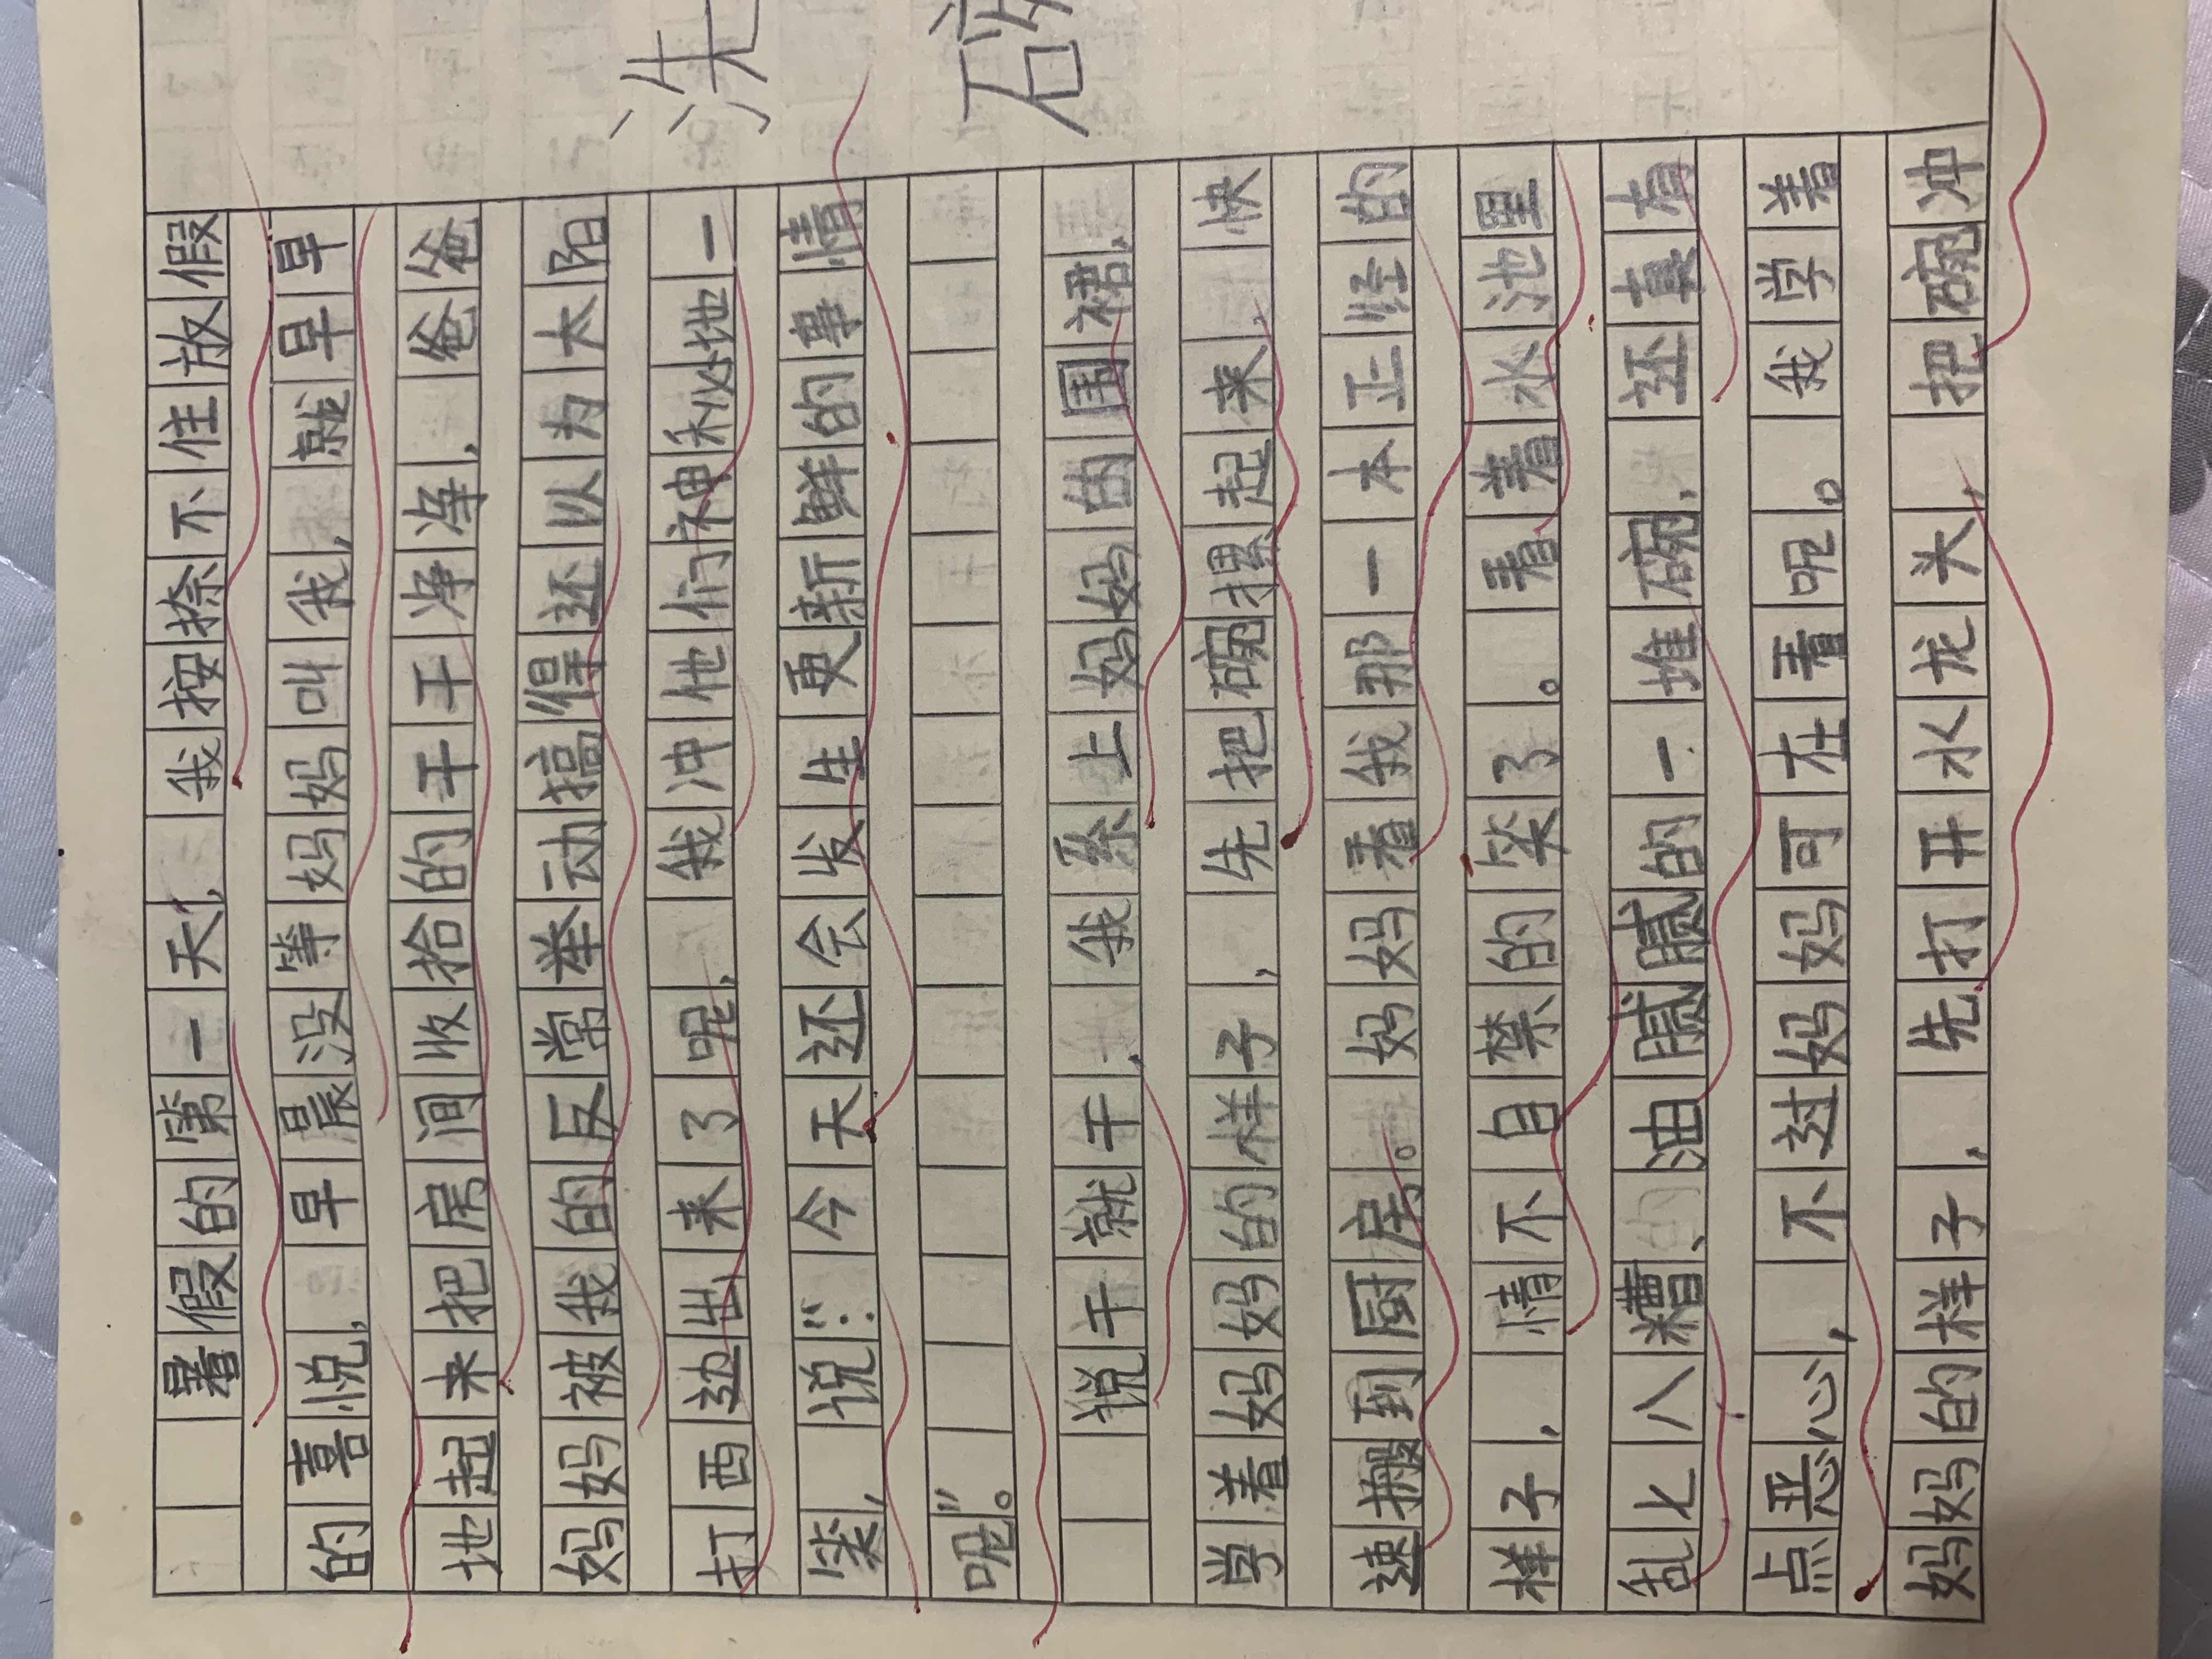 洗碗
暑假的第一天，我按捺不住放假
的喜悦，早晨没等妈妈叫我，就早早
地起来把房间收拾的干干净净，爸爸
妈妈被我的反常举动搞得还以为太阳
打西边出来了呢，我冲他们神秘地一
笑，说：“今天还会发生更新鲜的事情
呢”。
说干就干，我系上妈妈的围裙，
学着妈妈的样子，先把碗摞起来，快
速搬到厨房。妈妈看我那一本正经的
样子，情不自禁的笑了。看着水池里
乱七八糟、油腻腻的一堆碗，还真有
点恶心，不过妈妈可在看呢。我学着
妈妈的样子，先打开水龙头，把碗冲